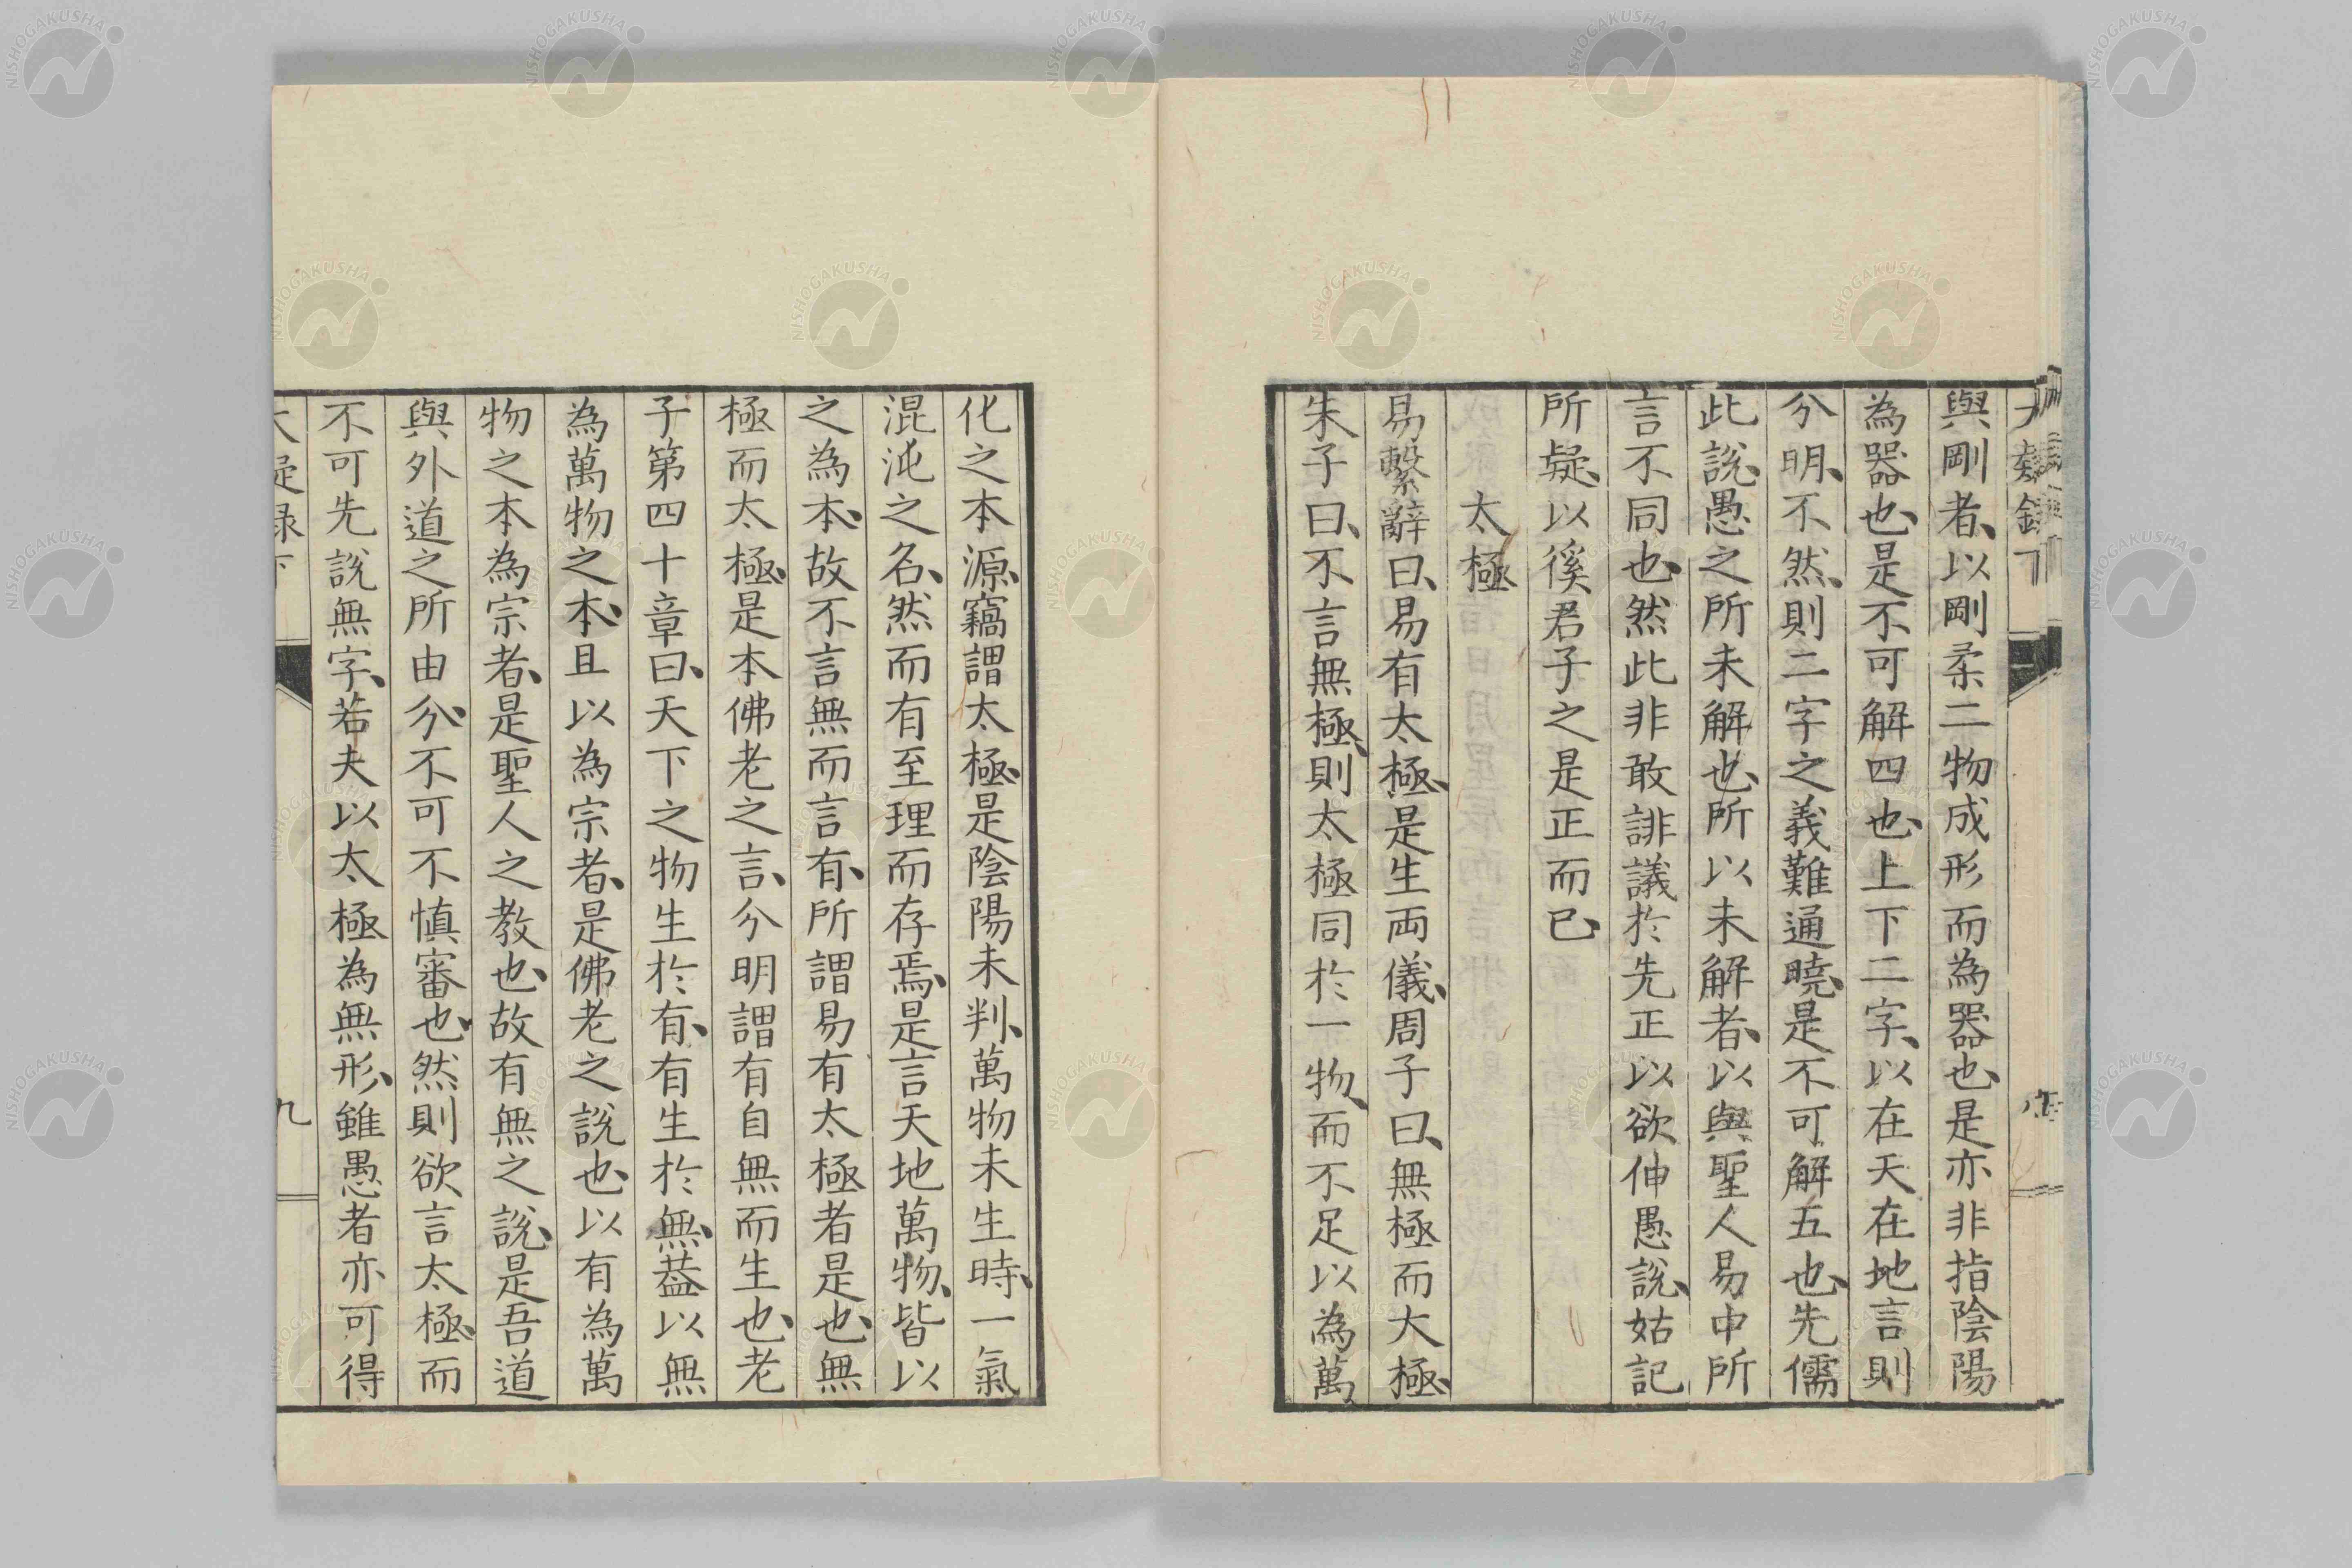 與剛者、以剛柔二物成形而為器也、是亦非指陰陽
為器也、是不可解四也、上下二字、以在天在地言則
分明、不然、則二字之義難通曉、是不可解五也、先儒
此說、愚之所未解也、所以未解者、以與聖人易中所
言不同也、然此非敢誹議於先正以欲伸愚說、姑記
所疑、以徯君子之是正而已、
太極
易繫辭曰、易有太極、是生両儀、周子曰、無極而大極、
朱子曰、不言無極、則太極同於一物、而不足以為萬
化之本源、竊謂太極、是陰陽未判、萬物未生時、一氣
混沌之名、然而有至理而存焉、是言天地萬物、皆以
之為本、故不言無而言有、所謂易有太極者是也、無
極而太極、是本佛老之言、分明謂有自無而生也、老
子第四十章曰、天下之物生於有、有生於無、葢以無
為萬物之本、且以為宗者、是佛老之說也、以有為萬
物之本為宗者、是聖人之教也、故有無之說、是吾道
與外道之所由分、不可不慎審也、然則欲言太極、而
不可先說無字、若夫以太極為無形、雖愚者亦可得
九
NISHOGAKUSHA